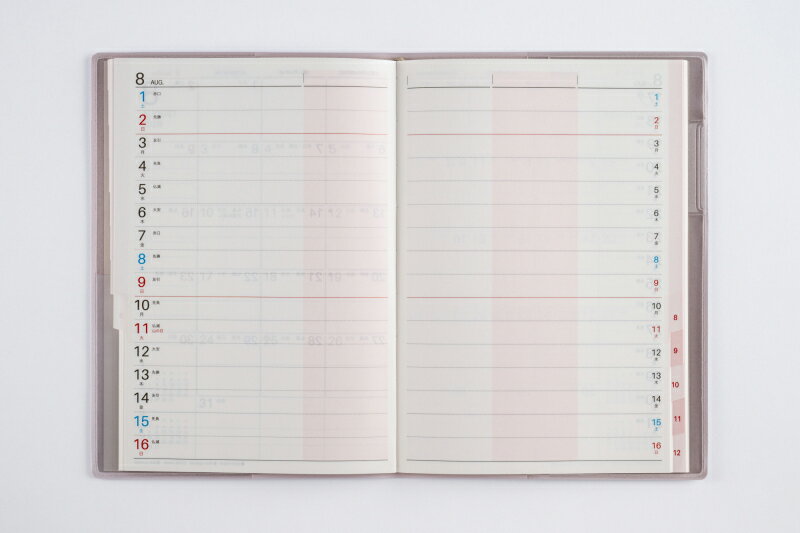 8 AUG.
1 土 赤口
2 日 先勝
3 月 友引
4 火 先負
5 水 仏滅
6 木 大安
7 金 赤口
8 土 先勝
9 日 友引
10 月 先負
11 火 仏滅 山の日
12 水 大安
13 木 先勝
14 金 友引
15 土 先負
16 日 仏滅
1 土
2 日
3 月
4 火
5 水
6 木
7 金
8 土
9 日
10 月
11 火
12 水
13 木
14 金
15 土
16 日
8
9
10
11
12